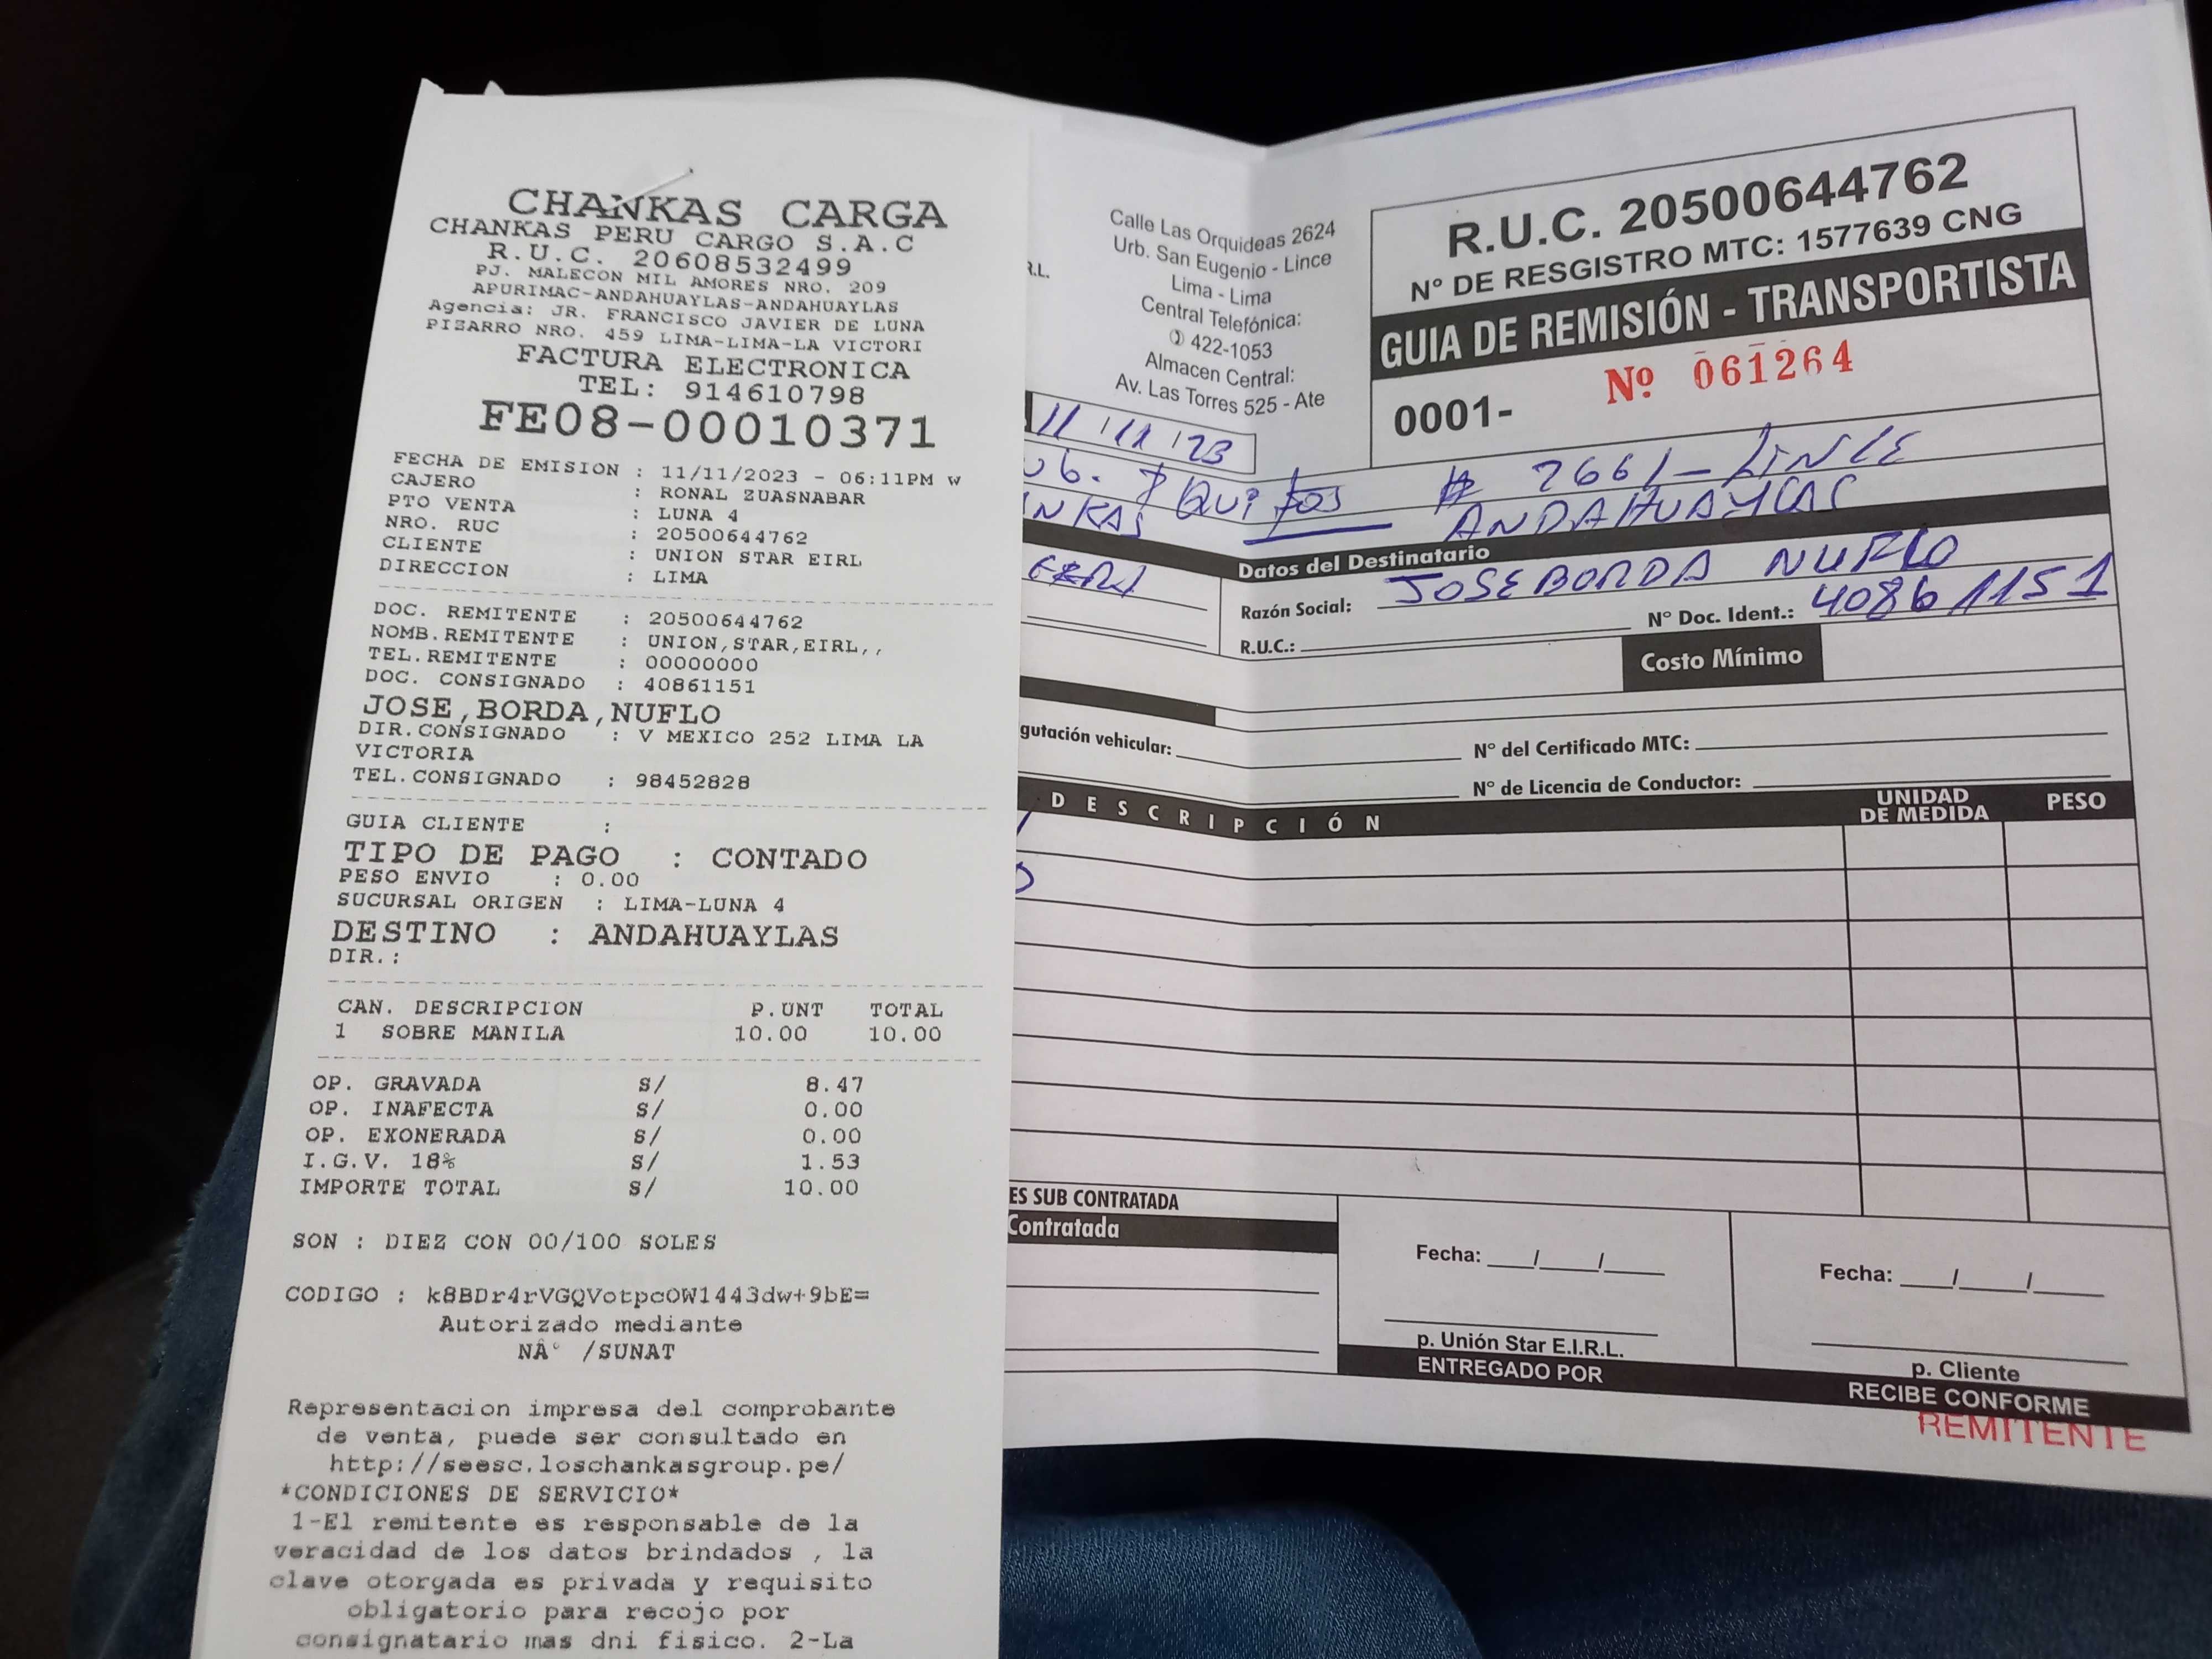 CHANKAS CARGA
CHANKAS PERU CARGO S.A.C
R.U.C. 20608532499
PJ. MALECON MIL AMORES NRO. 209
APURIMAC-ANDAHUAYLAS-ANDAHUAYLAS
Agencia: JR. FRANCISCO JAVIER DE LUNA
PIZARRO NRO. 459 LIMA-LIMA-LA VICTORI
FACTURA ELECTRONICA
TEL: 914610798
FE08-00010371
FECHA DE EMISION : 11/11/2023 - 06:11PM W
CAJERO : RONAL ZUASNABAR
PTO VENTA : LUNA 4
NRO. RUC : 20500644762
CLIENTE : UNION STAR EIRL
DIRECCION : LIMA
DOC. REMITENTE : 20500644762
NOMB.REMITENTE : UNION,STAR,EIRL,,
TEL.REMITENTE : 00000000
DOC. CONSIGNADO : 40861151
JOSE,BORDA,NUFLO
DIR.CONSIGNADO : V MEXICO 252 LIMA LA
VICTORIA
TEL.CONSIGNADO : 98452828
GUIA CLIENTE :
TIPO DE PAGO : CONTADO
PESO ENVIO : 0.00
SUCURSAL ORIGEN : LIMA-LUNA 4
DESTINO : ANDAHUAYLAS
DIR.:
CAN. DESCRIPCION P.UNT TOTAL
1 SOBRE MANILA 10.00 10.00
OP. GRAVADA S/ 8.47
OP. INAFECTA S/ 0.00
OP. EXONERADA S/ 0.00
I.G.V. 18% S/ 1.53
IMPORTE TOTAL S/ 10.00
SON : DIEZ CON 00/100 SOLES
CODIGO : k8BDr4rVGQVotpcOW1443dw+9bE=
Autorizado mediante
NÂ° /SUNAT
Representacion impresa del comprobante
de venta, puede ser consultado en
http://seesc.loschankasgroup.pe/
*CONDICIONES DE SERVICIO*
1-El remitente es responsable de la
veracidad de los datos brindados , la
clave otorgada es privada y requisito
obligatorio para recojo por
consignatario mas dni fisico. 2-La
R.L.
Calle Las Orquideas 2624
Urb. San Eugenio - Lince
Lima - Lima
Central Telefónica:
422-1053
Almacen Central:
Av. Las Torres 525 - Ate
R.U.C. 20500644762
N° DE RESGISTRO MTC: 1577639 CNG
GUIA DE REMISIÓN - TRANSPORTISTA
0001- Nº 061264
11/11/23
# 2661-LINCE
NKAS ANDAHUAYLAS
Datos del Destinatario
Razón Social: JOSE BORDA NUFLO
R.U.C.: N° Doc. Ident.: 40861151
Costo Mínimo
gutación vehicular: N° del Certificado MTC:
N° de Licencia de Conductor:
DESCRIPCIÓN UNIDAD DE MEDIDA PESO
ES SUB CONTRATADA
Contratada
Fecha: / /
p. Unión Star E.I.R.L.
ENTREGADO POR
Fecha: / /
p. Cliente
RECIBE CONFORME
REMITENTE